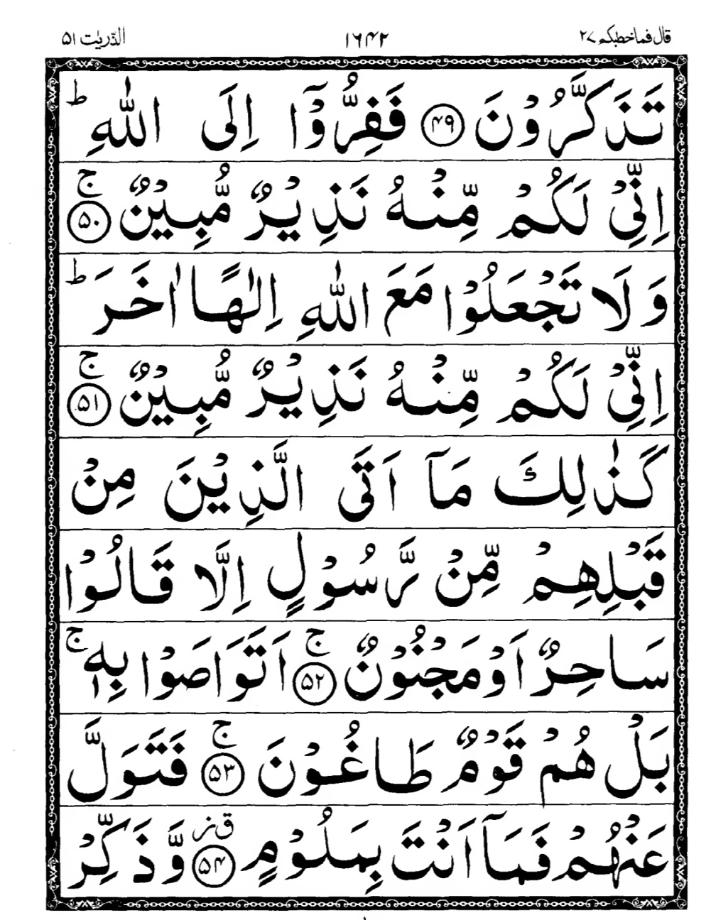 قال فماخطبكم ٢٧ ١٦۴٢ الذّٰریٰت ۵١
تَذَكَّرُوْنَ ۴۹ فَفِرُّوْۤا اِلَى اللّٰهِ ؕ
اِنِّیْ لَكُمْ مِّنْهُ نَذِیْرٌ مُّبِیْنٌ ۚ ۵۰
وَ لَا تَجْعَلُوْا مَعَ اللّٰهِ اِلٰهًا اٰخَرَ ؕ
اِنِّیْ لَكُمْ مِّنْهُ نَذِیْرٌ مُّبِیْنٌ ۚ ۵۱
كَذٰلِكَ مَاۤ اَتَى الَّذِیْنَ مِنْ
قَبْلِهِمْ مِّنْ رَّسُوْلٍ اِلَّا قَالُوْا
سَاحِرٌ اَوْ مَجْنُوْنٌ ۚ ۵۲ اَتَوَاصَوْا بِهٖ ۚ
بَلْ هُمْ قَوْمٌ طَاغُوْنَ ۚ ۵۳ فَتَوَلَّ
عَنْهُمْ فَمَاۤ اَنْتَ بِمَلُوْمٍ ق ز ۵۴ وَّ ذَكِّرْ